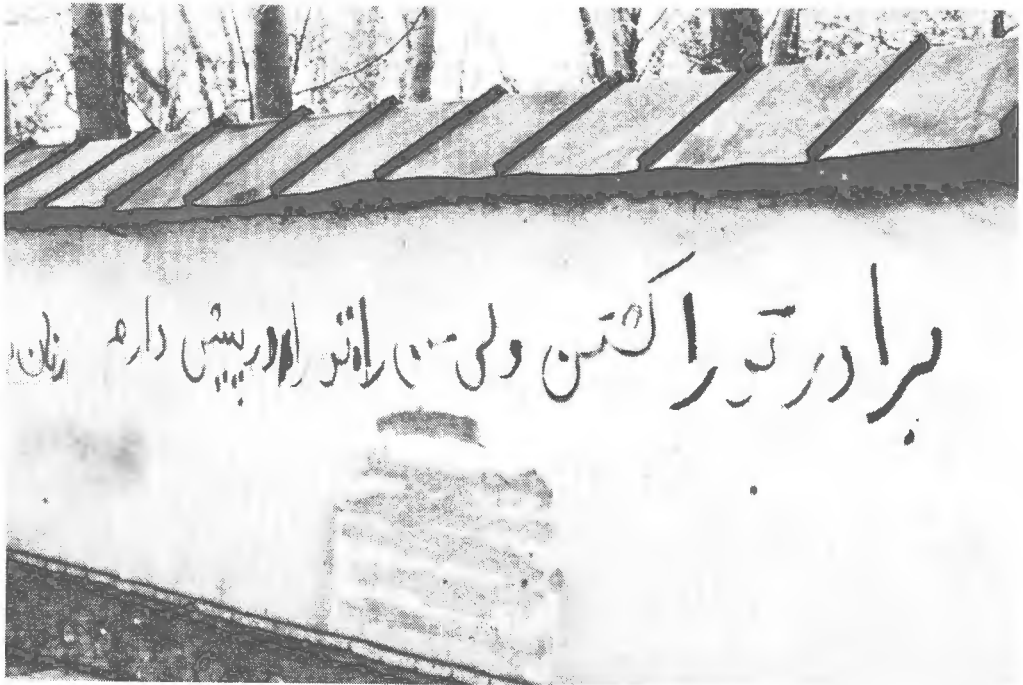 برادر تو را کشتن ولی من راه تو را در پیش دارم